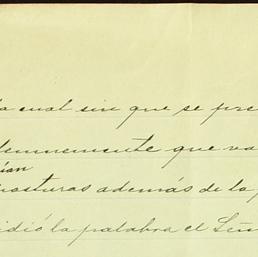 la cual sin que se pre
lemnemente que va
ían
posturas además de la p
idió la palabra el Señ